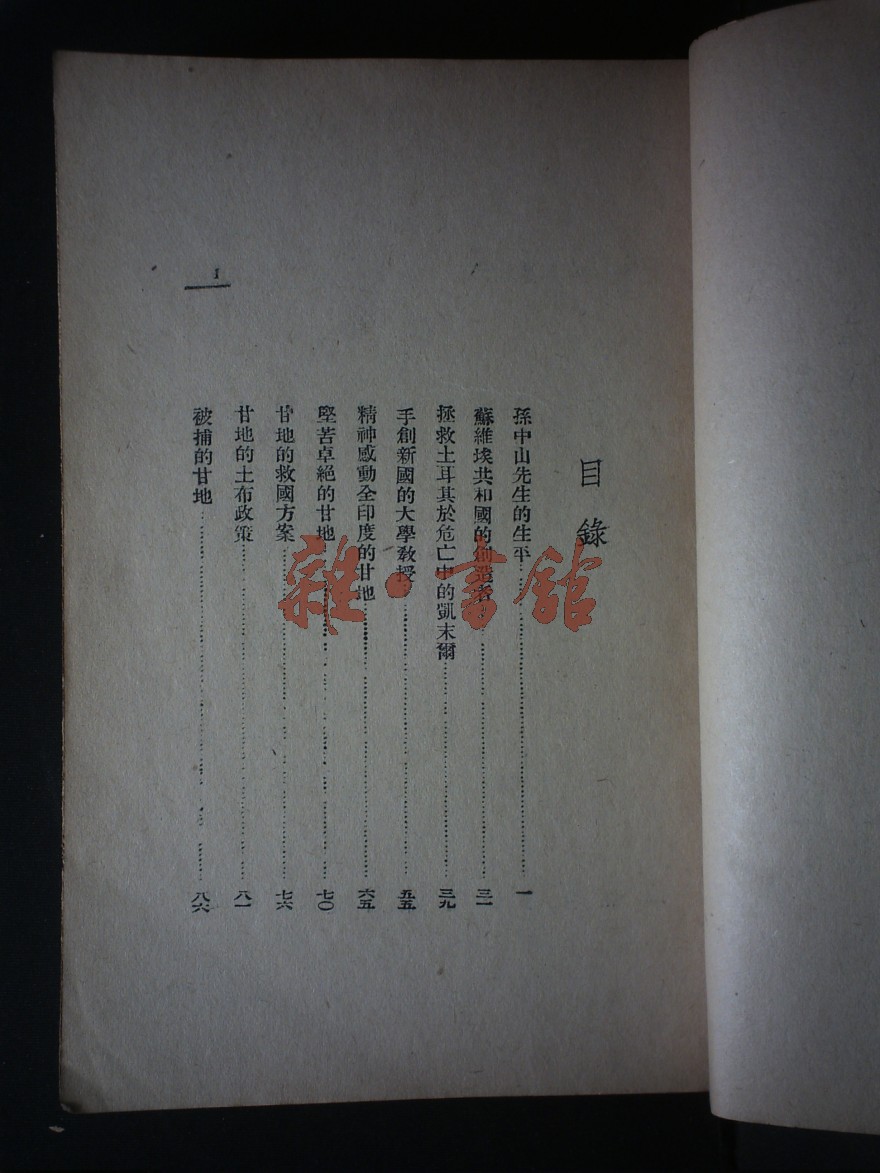 目錄
孫中山先生的生平……一
蘇維埃共和國的創造者……三一
拯救土耳其於危亡中的凱末爾……三九
手創新國的大學教授……五五
精神感動全印度的甘地……六五
堅苦卓絕的甘地……七〇
甘地的救國方案……七六
甘地的土布政策……八一
被捕的甘地……八六
1
雜·書館